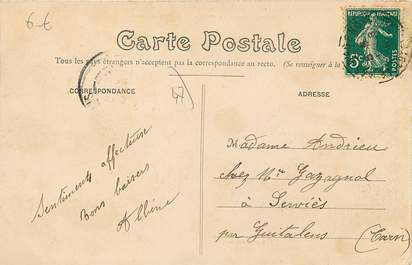 6 €
Carte Postale
Tous les pays étrangers n'acceptent pas la correspondance au recto. (Se renseigner à la
CORRESPONDANCE
ADRESSE
RÉPUBLIQUE FRANÇAISE
5c
POSTES
47
Sentiments affectueux
Bons baisers
Albine
Madame Andrieu
chez Mr Gazagnol
à Serviès
par Guitalens (Tarn)